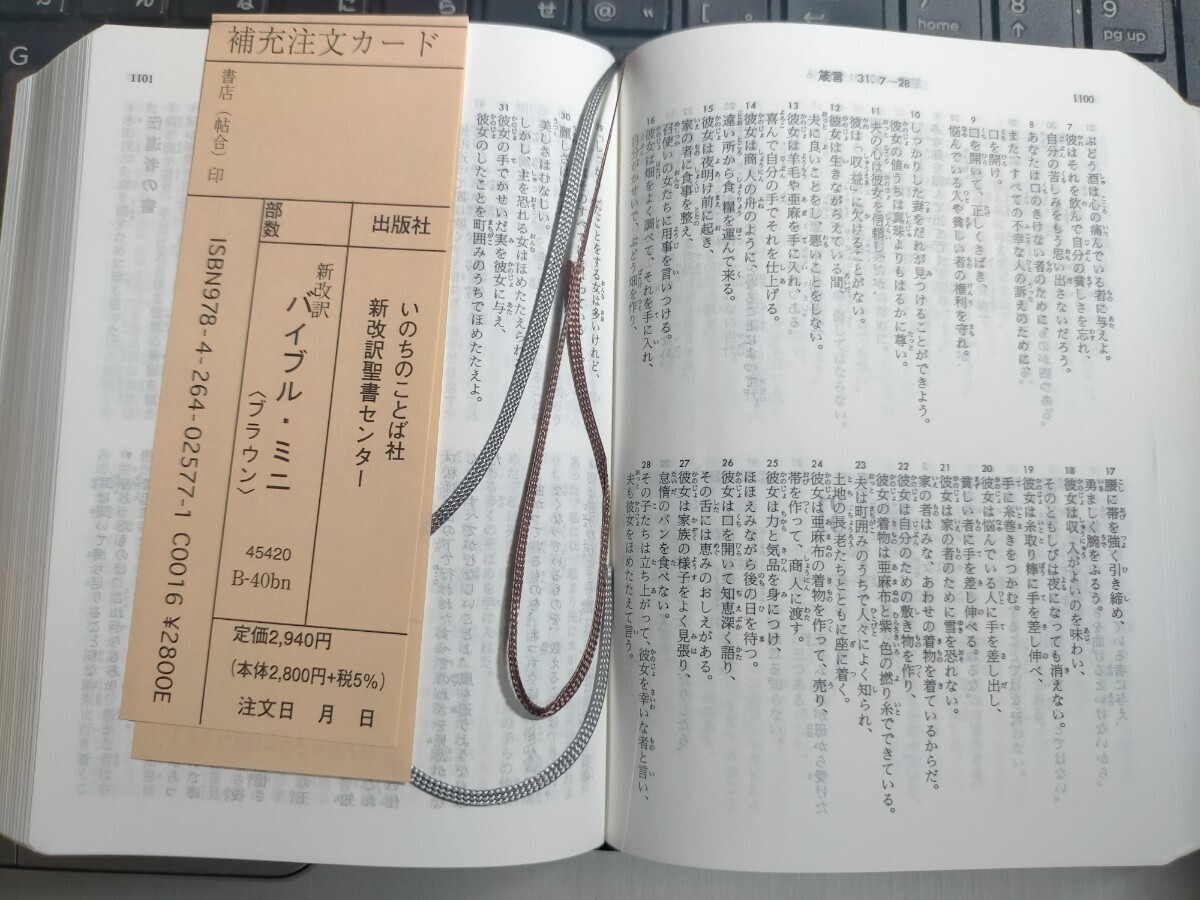 箴言 31.7—28
1100
7 彼はそれを飲んで自分の貧しさを忘れ、
自分の苦しみをもう思い出さないだろう。
8 あなたは口のきけない者のために、
また、すべての不幸な人の訴えのために、
口を開け。
9 口を開いて、正しくさばき、
悩んでいる人や貧しい者の権利を守れ。
10 しっかりした妻をだれが見つけることができよう。
彼女の値うちは真珠よりもはるかに尊い。
11 夫の心は彼女を信頼し、
彼は「収益」に欠けることがない。
12 彼女は生きながらえている間、
夫に良いことをし、悪いことをしない。
13 彼女は羊毛や亜麻を手に入れ、
喜んで自分の手でそれを仕上げる。
14 彼女は商人の舟のように、
遠い所から食糧を運んで来る。
15 彼女は夜明け前に起き、
家の者に食事を整え、
召使いの女たちに用事を言いつける。
16 彼女は畑をよく調べて、それを手に入れ、
ぶどう畑を作り、
17 腰に帯を強く引き締め、
勇ましく腕をふるう。
18 彼女は収入がよいのを味わい、
そのともしびは夜になっても消えない。
19 彼女は糸取り棒に手を差し伸べ、
手に糸巻きをつかむ。
20 彼女は悩んでいる人に手を差し出し、
貧しい者に手を差し伸べる。
21 彼女は家の者のために雪を恐れない。
家の者はみな、あわせの着物を着ているからだ。
22 彼女は自分のための敷き物を作り、
彼女の着物は亜麻布と紫色の撚り糸でできている。
23 夫は町囲みのうちで人々によく知られ、
土地の長老たちとともに座に着く。
24 彼女は亜麻布の着物を作って、売り、
帯を作って、商人に渡す。
25 彼女は力と気品を身につけ、
ほほえみながら後の日を待つ。
26 彼女は口を開いて知恵深く語り、
その舌には恵みのおしえがある。
27 彼女は家族の様子をよく見張り、
怠惰のパンを食べない。
28 その子たちは立ち上がって、彼女を幸いな者と言い、
夫も彼女をほめたたえて言う。
1101
ことをする女は多いけれど、
30
美しさはむなしい。
しかし、主を恐れる女はほめたたえられ
31 彼女の手でかせいだ実を彼女に与え、
彼女のしたことを町囲みのうちでほめたたえよ。
補充注文カード
書店(帖合)印
部数
出版社
いのちのことば社
新改訳聖書センター
新改訳
バイブル・ミニ
〈ブラウン〉
45420
B-40bn
ISBN978-4-264-02577-1 C0016 ¥2800E
定価2,940円
(本体2,800円+税5%)
注文日 月 日
G
せ
@
[
7
home
8
9
pg up